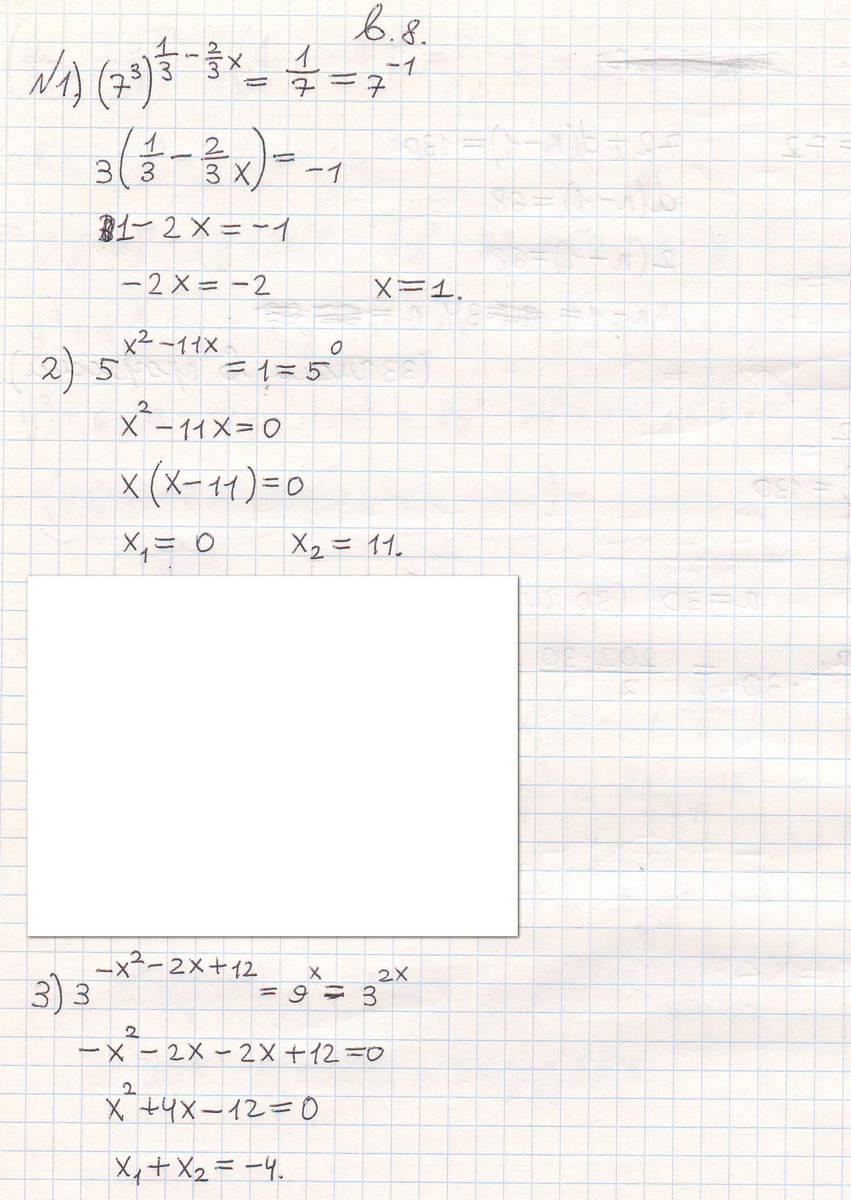 в. 8.
№1) (7³)^(1/3 − 2/3 x) = 1/7 = 7⁻¹
3(1/3 − 2/3 x) = −1
1 − 2x = −1
−2x = −2 x = 1.
2) 5^(x² − 11x) = 1 = 5⁰
x² − 11x = 0
x(x − 11) = 0
x₁ = 0 x₂ = 11.
3) 3^(−x² − 2x + 12) = 9^x = 3^(2x)
−x² − 2x − 2x + 12 = 0
x² + 4x − 12 = 0
x₁ + x₂ = −4.